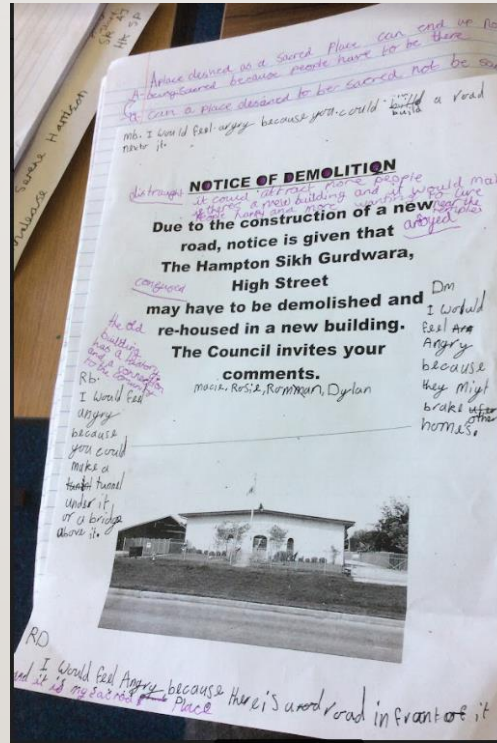 Serene Harrison
Aplace desined as a sacred Place can end up no
being sacred because people have to be there
can a place desined to be sacred not be sac
mb. I would feel angry because you could build a road
next to it.
NOTICE OF DEMOLITION
distraught it could attract more people
if theres a new building and it would mak
people happy and more wanting to live near the temple
Due to the construction of a new
road, notice is given that
anoyed
The Hampton Sikh Gurdwara,
High Street
may have to be demolished and
re-housed in a new building.
The Council invites your
comments.
macie. Rosie, Romman, Dylan
the old
building
has a
and a
to the
Rb.
I would feel
angry
because
you could
make a
tunnel
under it
or a bridge
above it.
Dm
I would
feel
Angry
because
they Miyt
brake
other
homes.
RD
I Would feel Angry because there is a road in front of it
it is my sacred Place